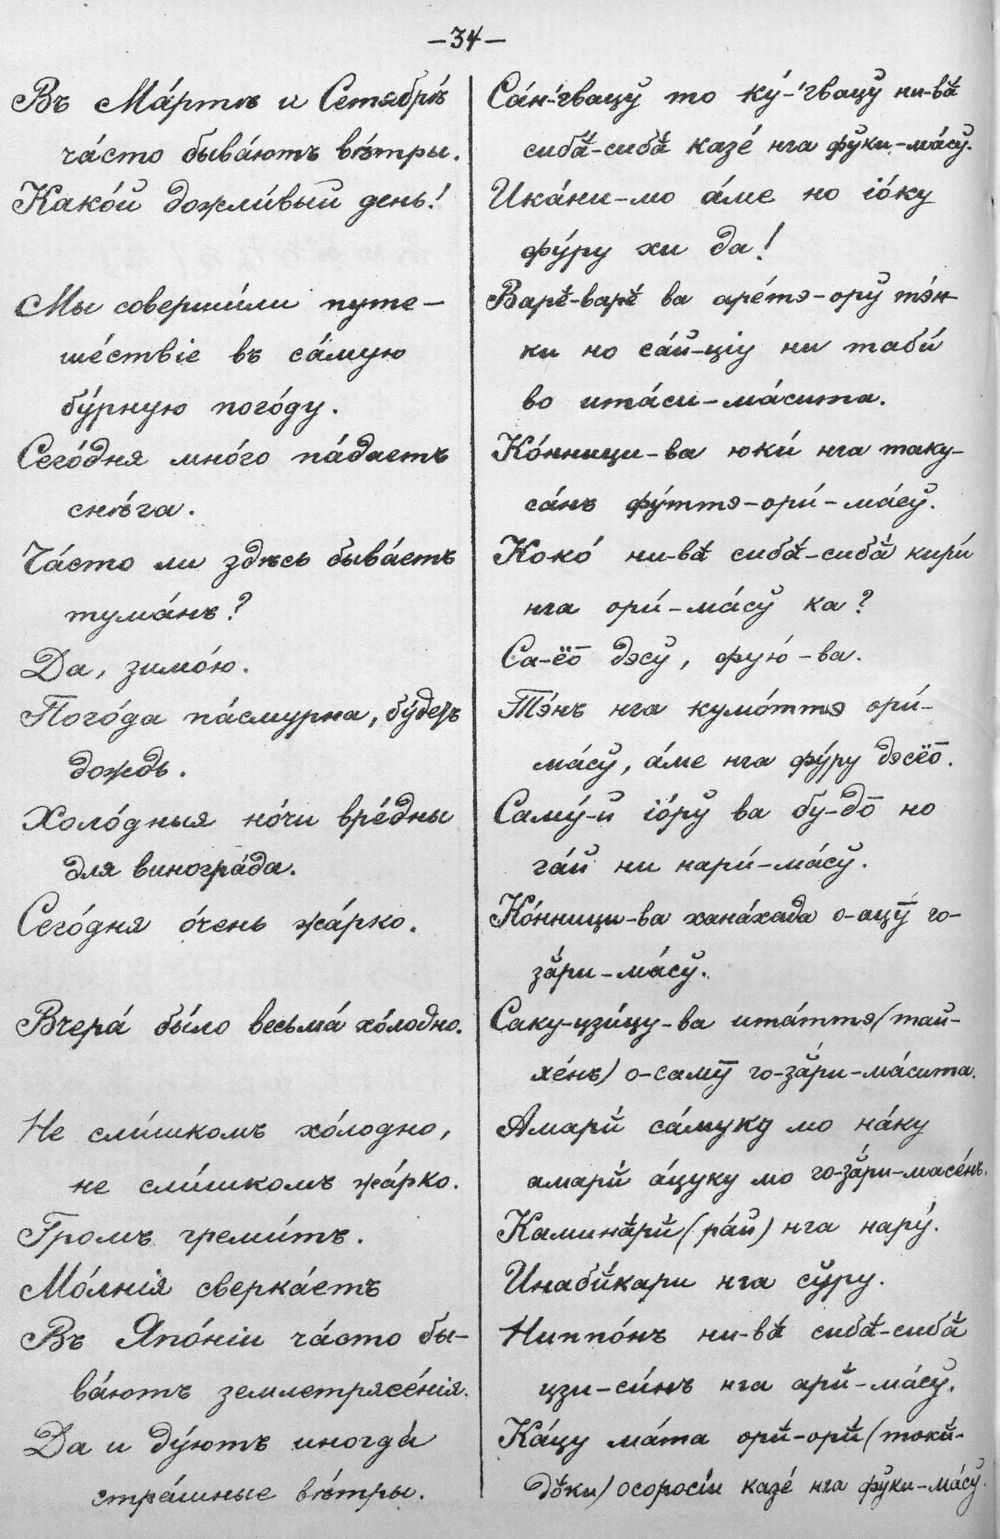 —34—
Въ Ма́ртѣ и Сетябрѣ́
ча́сто быва́ютъ вѣ́тры.
Како́й дожли́вый день!
Мы соверши́ли путе-
ше́ствіе въ са́мую
бу́рную пого́ду.
Сего́дня мно́го па́даетъ
снѣ́га.
Ча́сто ли здѣсь быва́етъ
тума́нъ?
Да, зимо́ю.
Пого́да па́смурна, бу́детъ
дождь.
Холо́дныя но́чи вре́дны
для виногра́да.
Сего́дня о́чень жа́рко.
Вчера́ бы́ло весьма́ хо́лодно.
Не сли́шкомъ хо́лодно,
не сли́шкомъ жа́рко.
Громъ греми́тъ.
Мо́лнія сверка́етъ
Въ Япо́ніи ча́сто бы-
ва́ютъ землетрясе́нія.
Да и ду́ютъ иногда́
стра́шные вѣ́тры.
Са́н-гвацў то ку́-гвацў ни-вӑ
сибӑ-сибӑ казе́ нга фўки-ма́сў.
Ика́ни-мо а́ме но іо́ку
фу́ру хи да!
Варӗ-варӗ ва аре́тэ-орў тэ́н-
ки но са́й-ціу ни таби́
во ита́си-ма́сита.
Ко́нници-ва юки́ нга таку-
са́нъ фу́ттэ-ори́-ма́сў.
Коко́ ни-вӑ сибӑ-сибӑ кири́
нга ори́-ма́сў ка?
Са-ёо̄ дэсў, фую́-ва.
Тэ́нъ нга кумо́ттэ ори́-
ма́сў, а́ме нга фу́ру дэсёо̄.
Саму́-и іо́рў ва бу́-до̄ но
га́й ни нари́-ма́сў.
Ко́нници-ва хана́хада о-ацӯ го-
зӑри-ма́сў.
Саку-цзи́цу-ва ита́ттэ (тай-
хе́нъ) о-самӯ го-зӑри-ма́сита.
Амарй са́муку мо на́ку
амарй а́цуку мо го-зӑри-масе́нъ.
Каминӑрй (ра́й) нга нару́.
Инабйкари нга сўру.
Ниппо́нъ ни-вӑ сибӑ-сибӑ
цзи-си́нъ нга арй-ма́сў.
Ка́цу ма́та орй-орй (токй-
до̆ки) осоросі́и казе́ нга фўки-ма́сў.